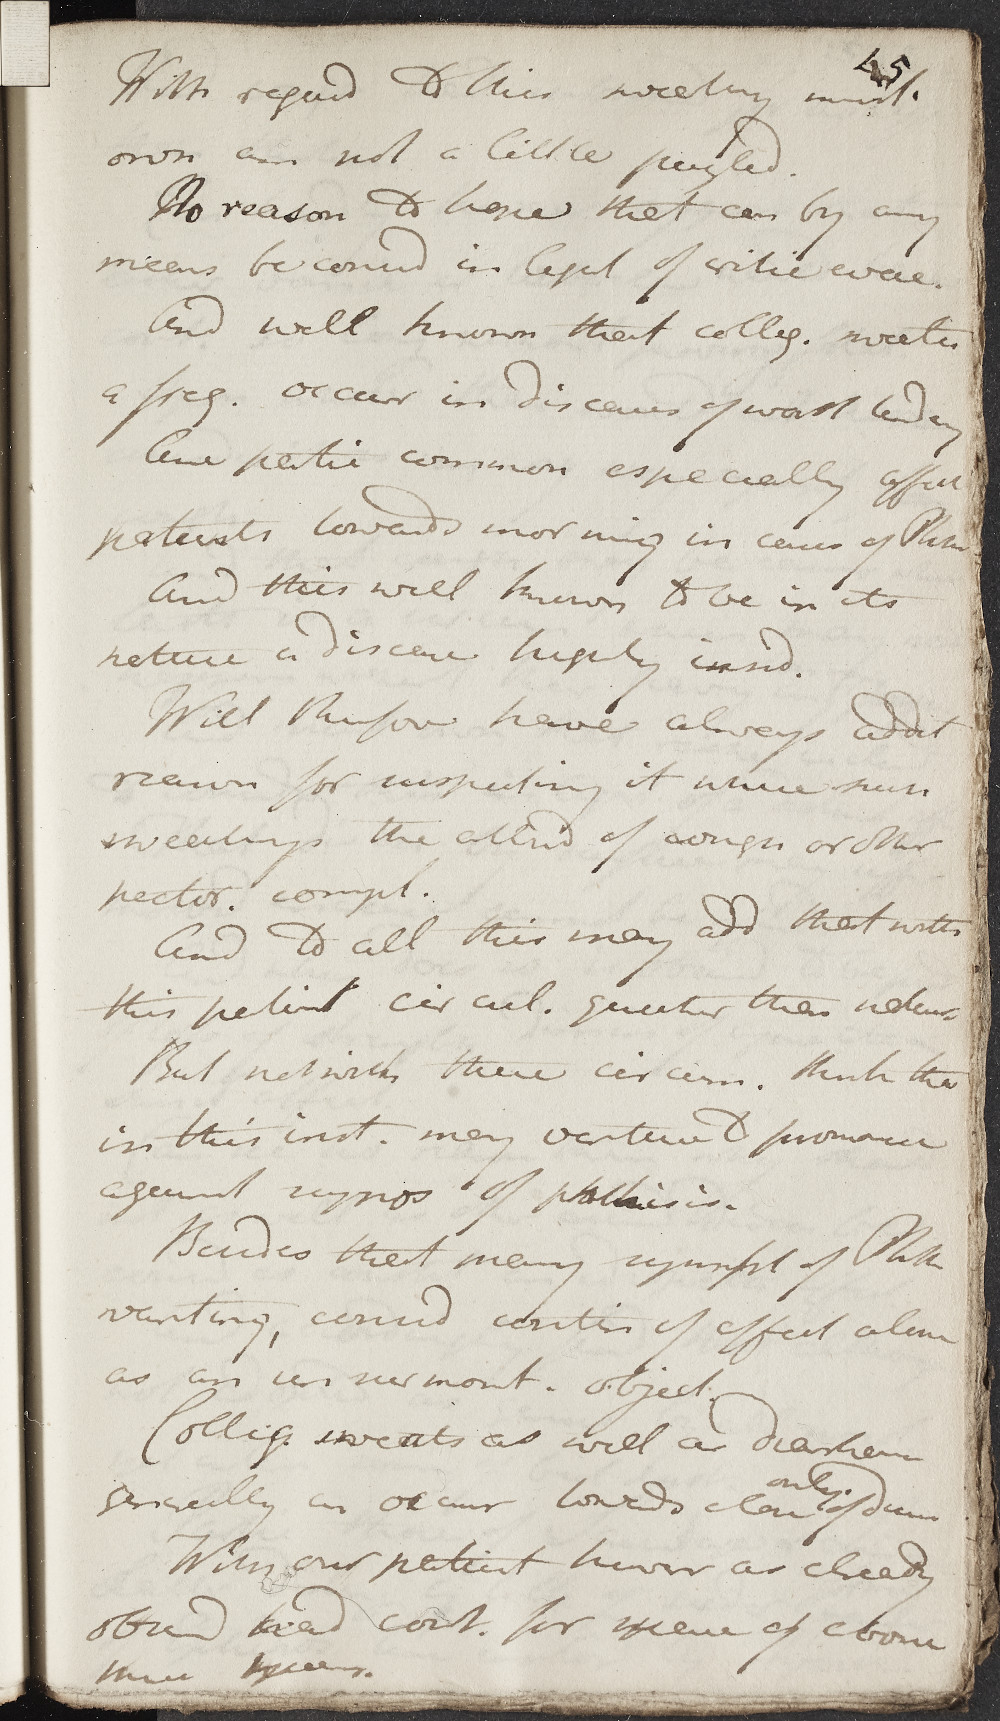 45
With regard to this sweating must
own am not a little puzled.
No reason to hope that can by any
means be consid in light of critic evac.
And well known that colliq. sweats
a freq. occur in diseases of worst tendency
And patic common especially affect
patients towards morning in cases of Phthi
And this well known to be in its
nature a disease highly insid.
Will therefore have always addit
reason for suspecting it where such
sweatings the attend of cough or other
pector. compl.
And to all this may add that with
this patient circul. quicker than natural
But notwith these circum. think that
in this inst. may venture to pronounce
against suppos of phthisis.
Besides that many sympt of Phth
wanting, consid contin of affect alone
as an unsurmont. object.
Collig. sweats as well as diarrhea
generally an occur towards close only of disease
With our patient however as already
observd had cont. for space of above
three years.